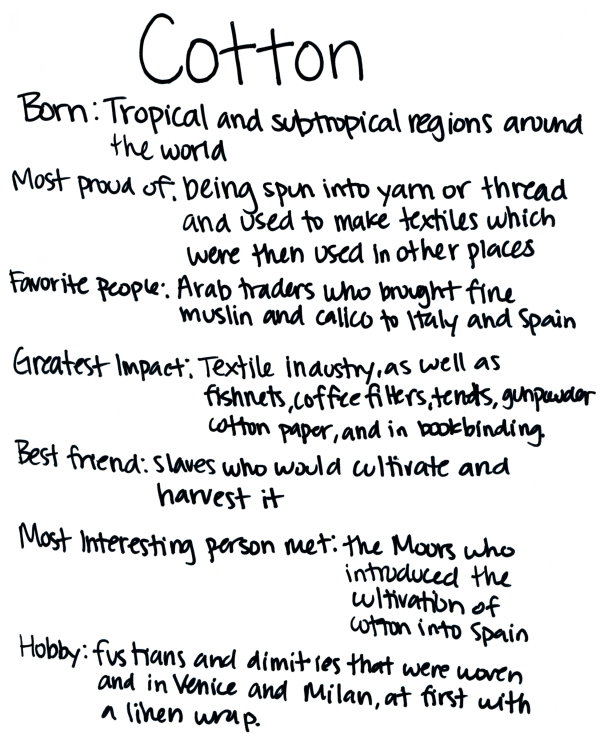 Cotton
Born: Tropical and subtropical regions around
the world
Most proud of: being spun into yarn or thread
and used to make textiles which
were then used in other places
Favorite people: Arab traders who brought fine
muslin and calico to Italy and Spain
Greatest Impact: Textile industry, as well as
fishnets, coffee filters, tents, gunpowder
cotton paper, and in bookbinding.
Best friend: slaves who would cultivate and
harvest it
Most Interesting person met: the Moors who
introduced the
cultivation of
cotton into Spain
Hobby: fustians and dimities that were woven
and in Venice and Milan, at first with
a linen wrap.